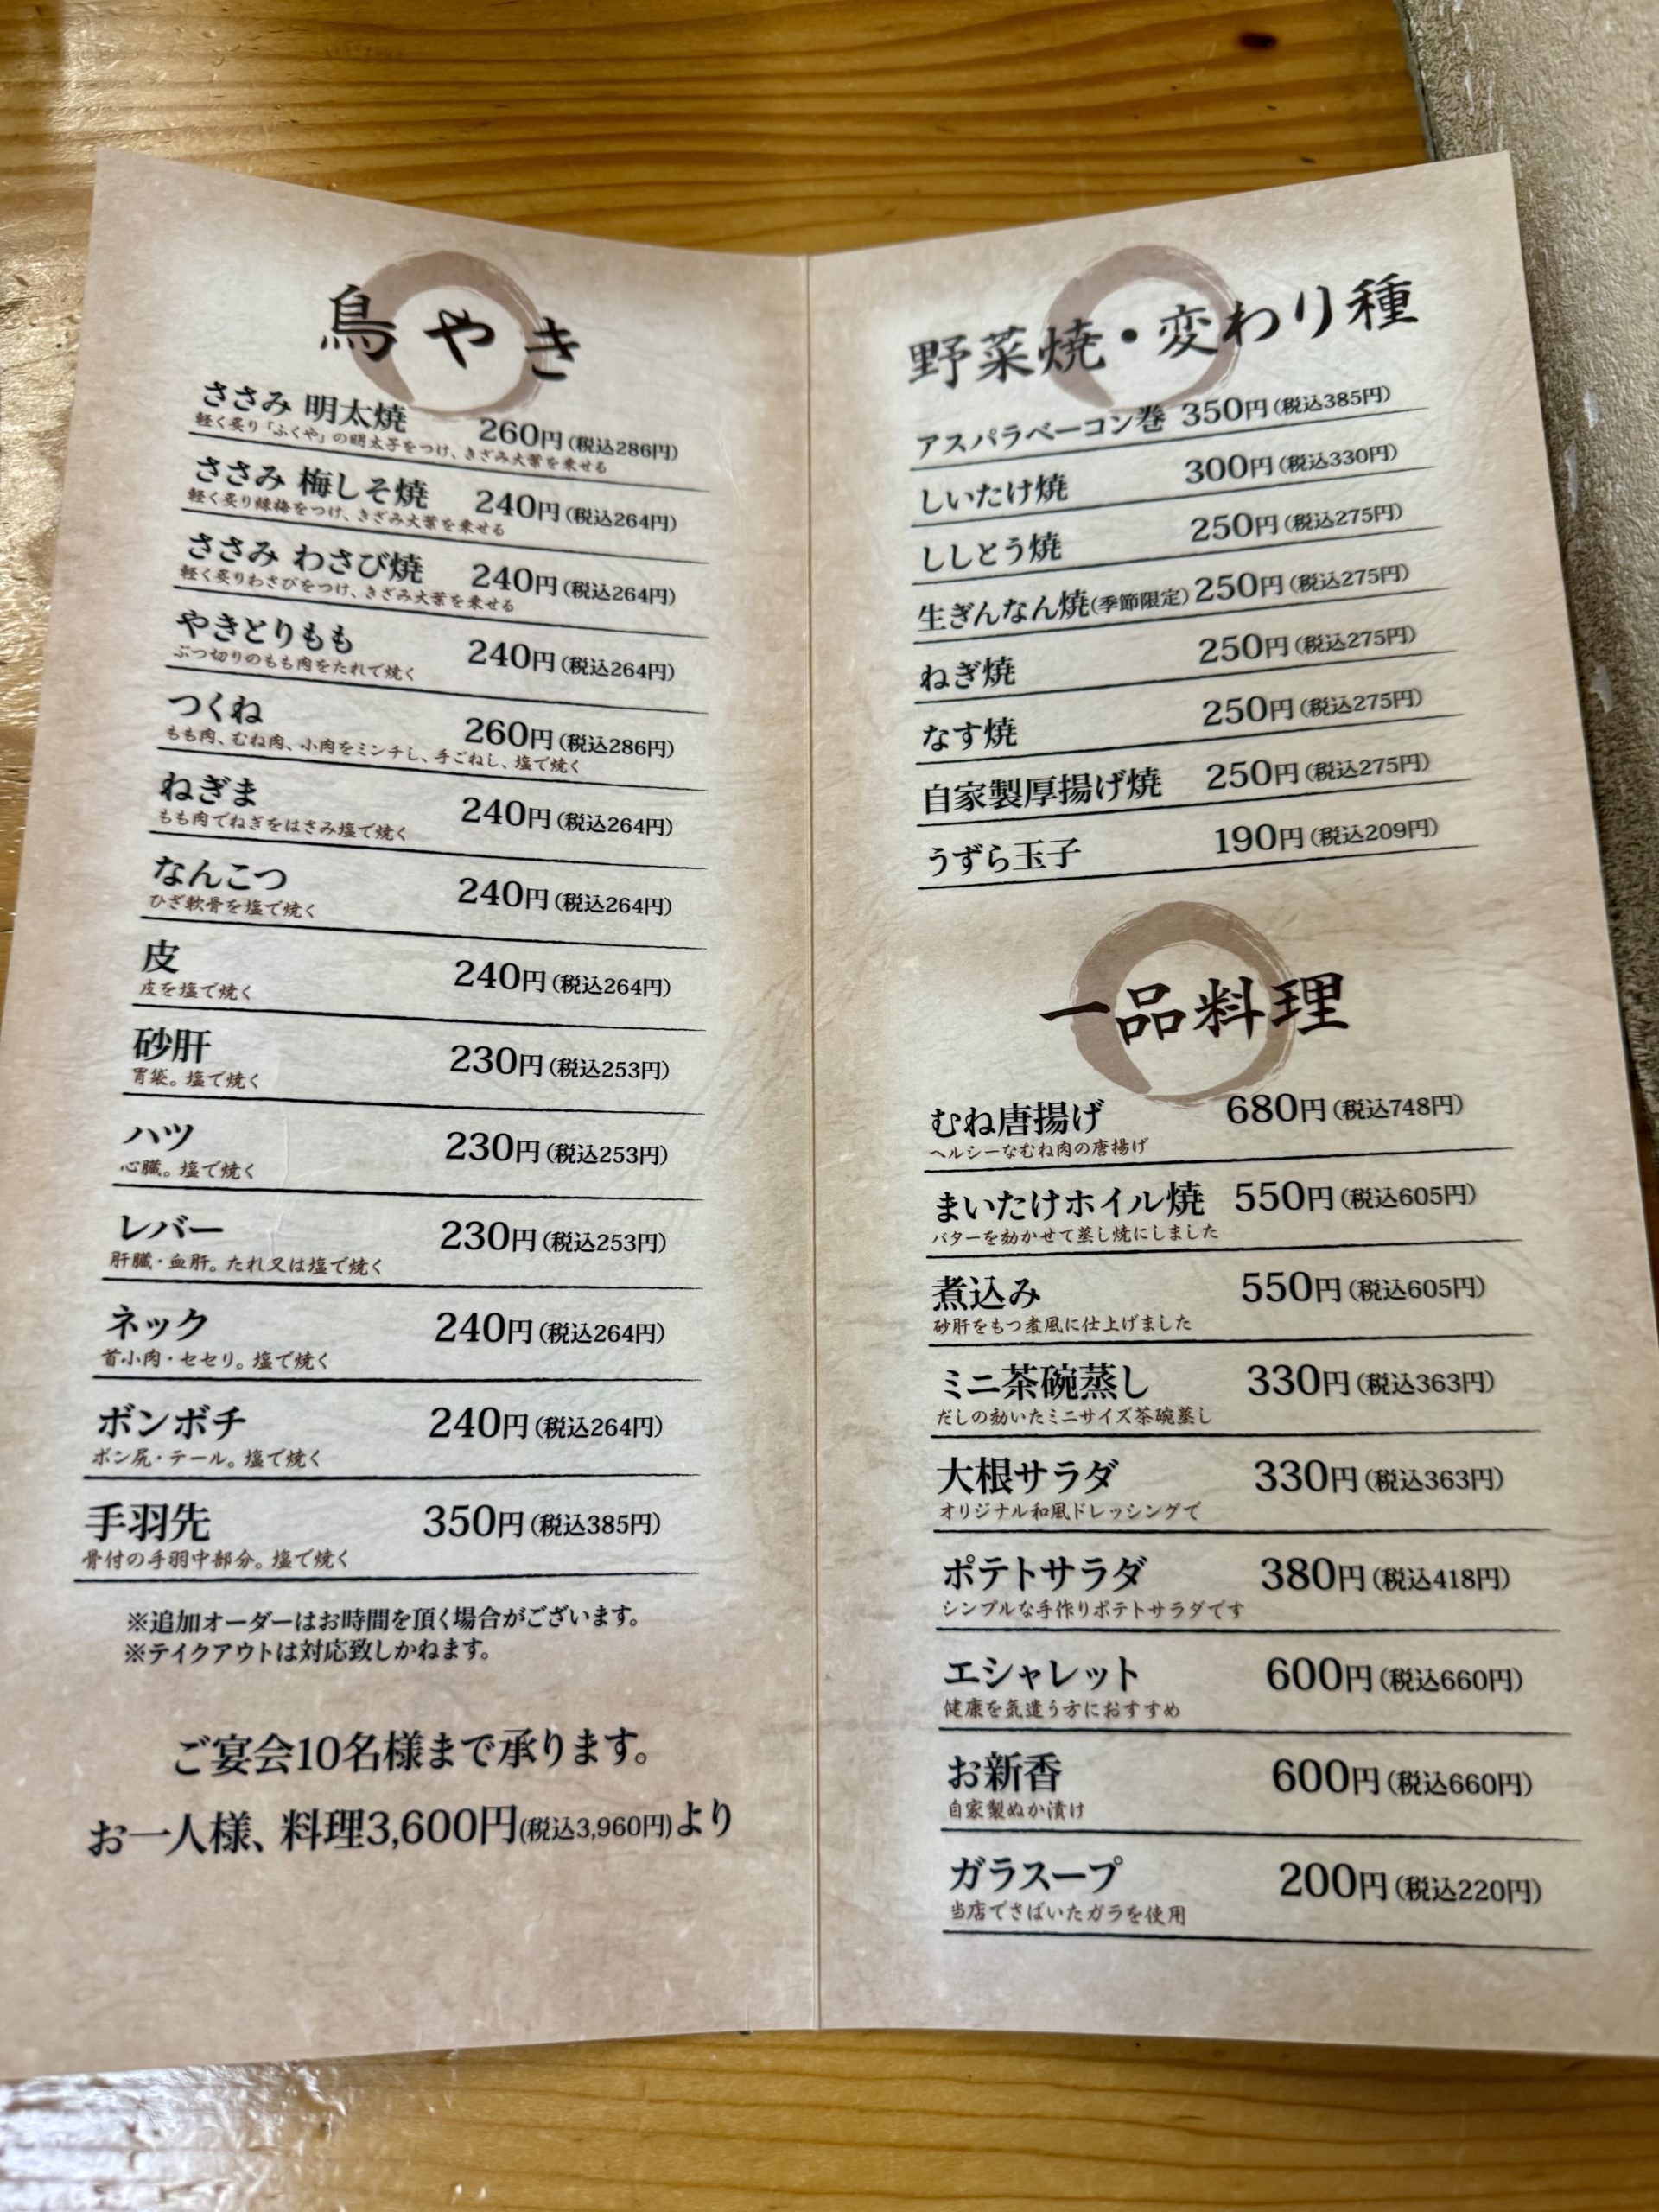 鳥やき
ささみ 明太焼 260円(税込286円)
軽く炙り「ふくや」の明太子をつけ、きざみ大葉を乗せる
ささみ 梅しそ焼 240円(税込264円)
軽く炙り練梅をつけ、きざみ大葉を乗せる
ささみ わさび焼 240円(税込264円)
軽く炙りわさびをつけ、きざみ大葉を乗せる
やきとりもも 240円(税込264円)
ぶつ切りのもも肉をたれで焼く
つくね 260円(税込286円)
もも肉、むね肉、小肉をミンチし、手ごねし、塩で焼く
ねぎま 240円(税込264円)
もも肉でねぎをはさみ塩で焼く
なんこつ 240円(税込264円)
ひざ軟骨を塩で焼く
皮 240円(税込264円)
皮を塩で焼く
砂肝 230円(税込253円)
胃袋。塩で焼く
ハツ 230円(税込253円)
心臓。塩で焼く
レバー 230円(税込253円)
肝臓・血肝。たれ又は塩で焼く
ネック 240円(税込264円)
首小肉・セセリ。塩で焼く
ボンボチ 240円(税込264円)
ボン尻・テール。塩で焼く
手羽先 350円(税込385円)
骨付の手羽中部分。塩で焼く
※追加オーダーはお時間を頂く場合がございます。
※テイクアウトは対応致しかねます。
ご宴会10名様まで承ります。
お一人様、料理3,600円(税込3,960円)より
野菜焼・変わり種
アスパラベーコン巻 350円(税込385円)
しいたけ焼 300円(税込330円)
ししとう焼 250円(税込275円)
生ぎんなん焼(季節限定) 250円(税込275円)
ねぎ焼 250円(税込275円)
なす焼 250円(税込275円)
自家製厚揚げ焼 250円(税込275円)
うずら玉子 190円(税込209円)
一品料理
むね唐揚げ 680円(税込748円)
ヘルシーなむね肉の唐揚げ
まいたけホイル焼 550円(税込605円)
バターを効かせて蒸し焼にしました
煮込み 550円(税込605円)
砂肝をもつ煮風に仕上げました
ミニ茶碗蒸し 330円(税込363円)
だしの効いたミニサイズ茶碗蒸し
大根サラダ 330円(税込363円)
オリジナル和風ドレッシングで
ポテトサラダ 380円(税込418円)
シンプルな手作りポテトサラダです
エシャレット 600円(税込660円)
健康を気遣う方におすすめ
お新香 600円(税込660円)
自家製ぬか漬け
ガラスープ 200円(税込220円)
当店でさばいたガラを使用